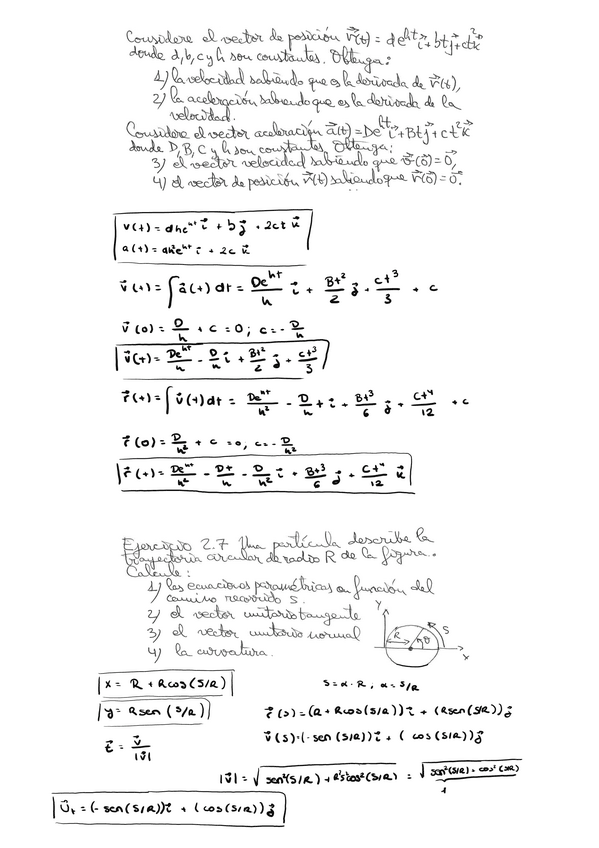 Considere el vector de posición r⃗(t) = de^{ht} i⃗ + bt j⃗ + ct² k⃗
donde d, b, c y h son constantes. Obtenga:
1) la velocidad sabiendo que es la derivada de r⃗(t),
2) la aceleración sabiendo que es la derivada de la
velocidad.
Considere el vector aceleración a⃗(t) = De^{ht} i⃗ + Bt j⃗ + ct² k⃗
donde D, B, C y h son constantes. Obtenga:
3) el vector velocidad sabiendo que v⃗(0) = 0⃗,
4) el vector de posición r⃗(t) sabiendo que r⃗(0) = 0⃗.
v(t) = dhe^{ht} i⃗ + b j⃗ + 2ct k⃗
a(t) = dh²e^{ht} i⃗ + 2c k⃗
v⃗(t) = ∫ a⃗(t) dt = De^{ht}/h i⃗ + Bt²/2 j⃗ + Ct³/3 + c
v⃗(0) = D/h + c = 0; c = - D/h
v⃗(t) = De^{ht}/h - D/h i⃗ + Bt²/2 j⃗ + Ct³/3
r⃗(t) = ∫ v⃗(t) dt = De^{ht}/h² - D/h t i⃗ + Bt³/6 j⃗ + Ct⁴/12 + c
r⃗(0) = D/h² + c = 0, c = - D/h²
r⃗(t) = De^{ht}/h² - Dt/h - D/h² i⃗ + Bt³/6 j⃗ + Ct⁴/12 k⃗
Ejercicio 2.7 Una partícula describe la
trayectoria circular de radio R de la figura.
Calcule:
1) las ecuaciones paramétricas en función del
camino recorrido s.
2) el vector unitario tangente
3) el vector unitario normal
4) la curvatura.
Y
R
R
θ
S
x
x = R + R cos (S/R)
S = α · R, α = S/R
y = R sen (S/R)
r⃗(s) = (R + R cos (S/R)) i⃗ + (R sen (S/R)) j⃗
t⃗ = v⃗/|v⃗|
v⃗(s) = (- sen (S/R)) i⃗ + ( cos (S/R)) j⃗
|v⃗| = √(sen²(S/R) + cos²(S/R)) = √(sen²(S/R) + cos²(S/R))
1
U⃗t = (- sen (S/R)) i⃗ + ( cos (S/R)) j⃗